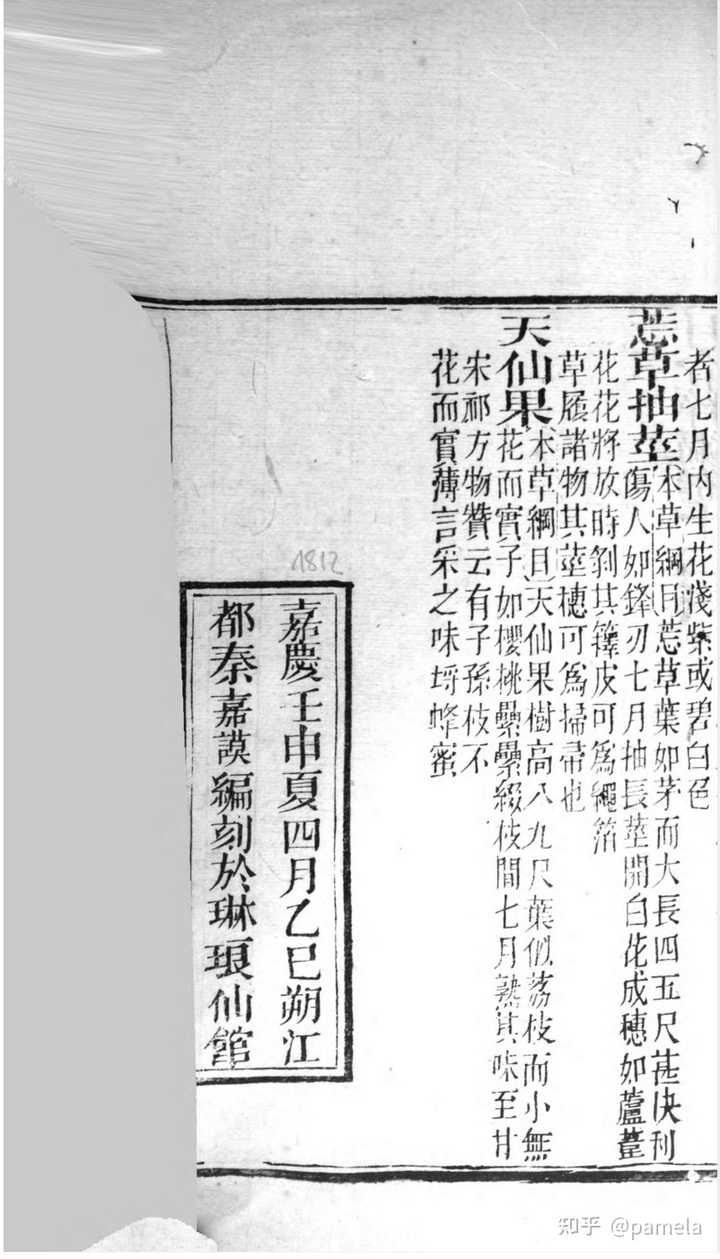 者七月内生花淺紫或碧白色
莣草抽莖
本草綱目莣草葉如茅而大長四五尺甚快利
傷人如鋒刃七月抽長莖開白花成穗如蘆薹
花花將放時剝其籜皮可為繩箔
草履諸物其莖穗可為掃帚也
天仙果
本草綱目天仙果樹高八九尺葉似荔枝而小無
花而實子如櫻桃纍纍綴枝間七月熟其味至甘
宋祁方物贊云有子孫枝不
花而實薄言采之味埒蜂蜜
1812
嘉慶壬申夏四月乙巳朔江
都秦嘉謨編刻於琳琅仙館
知乎 @pamela